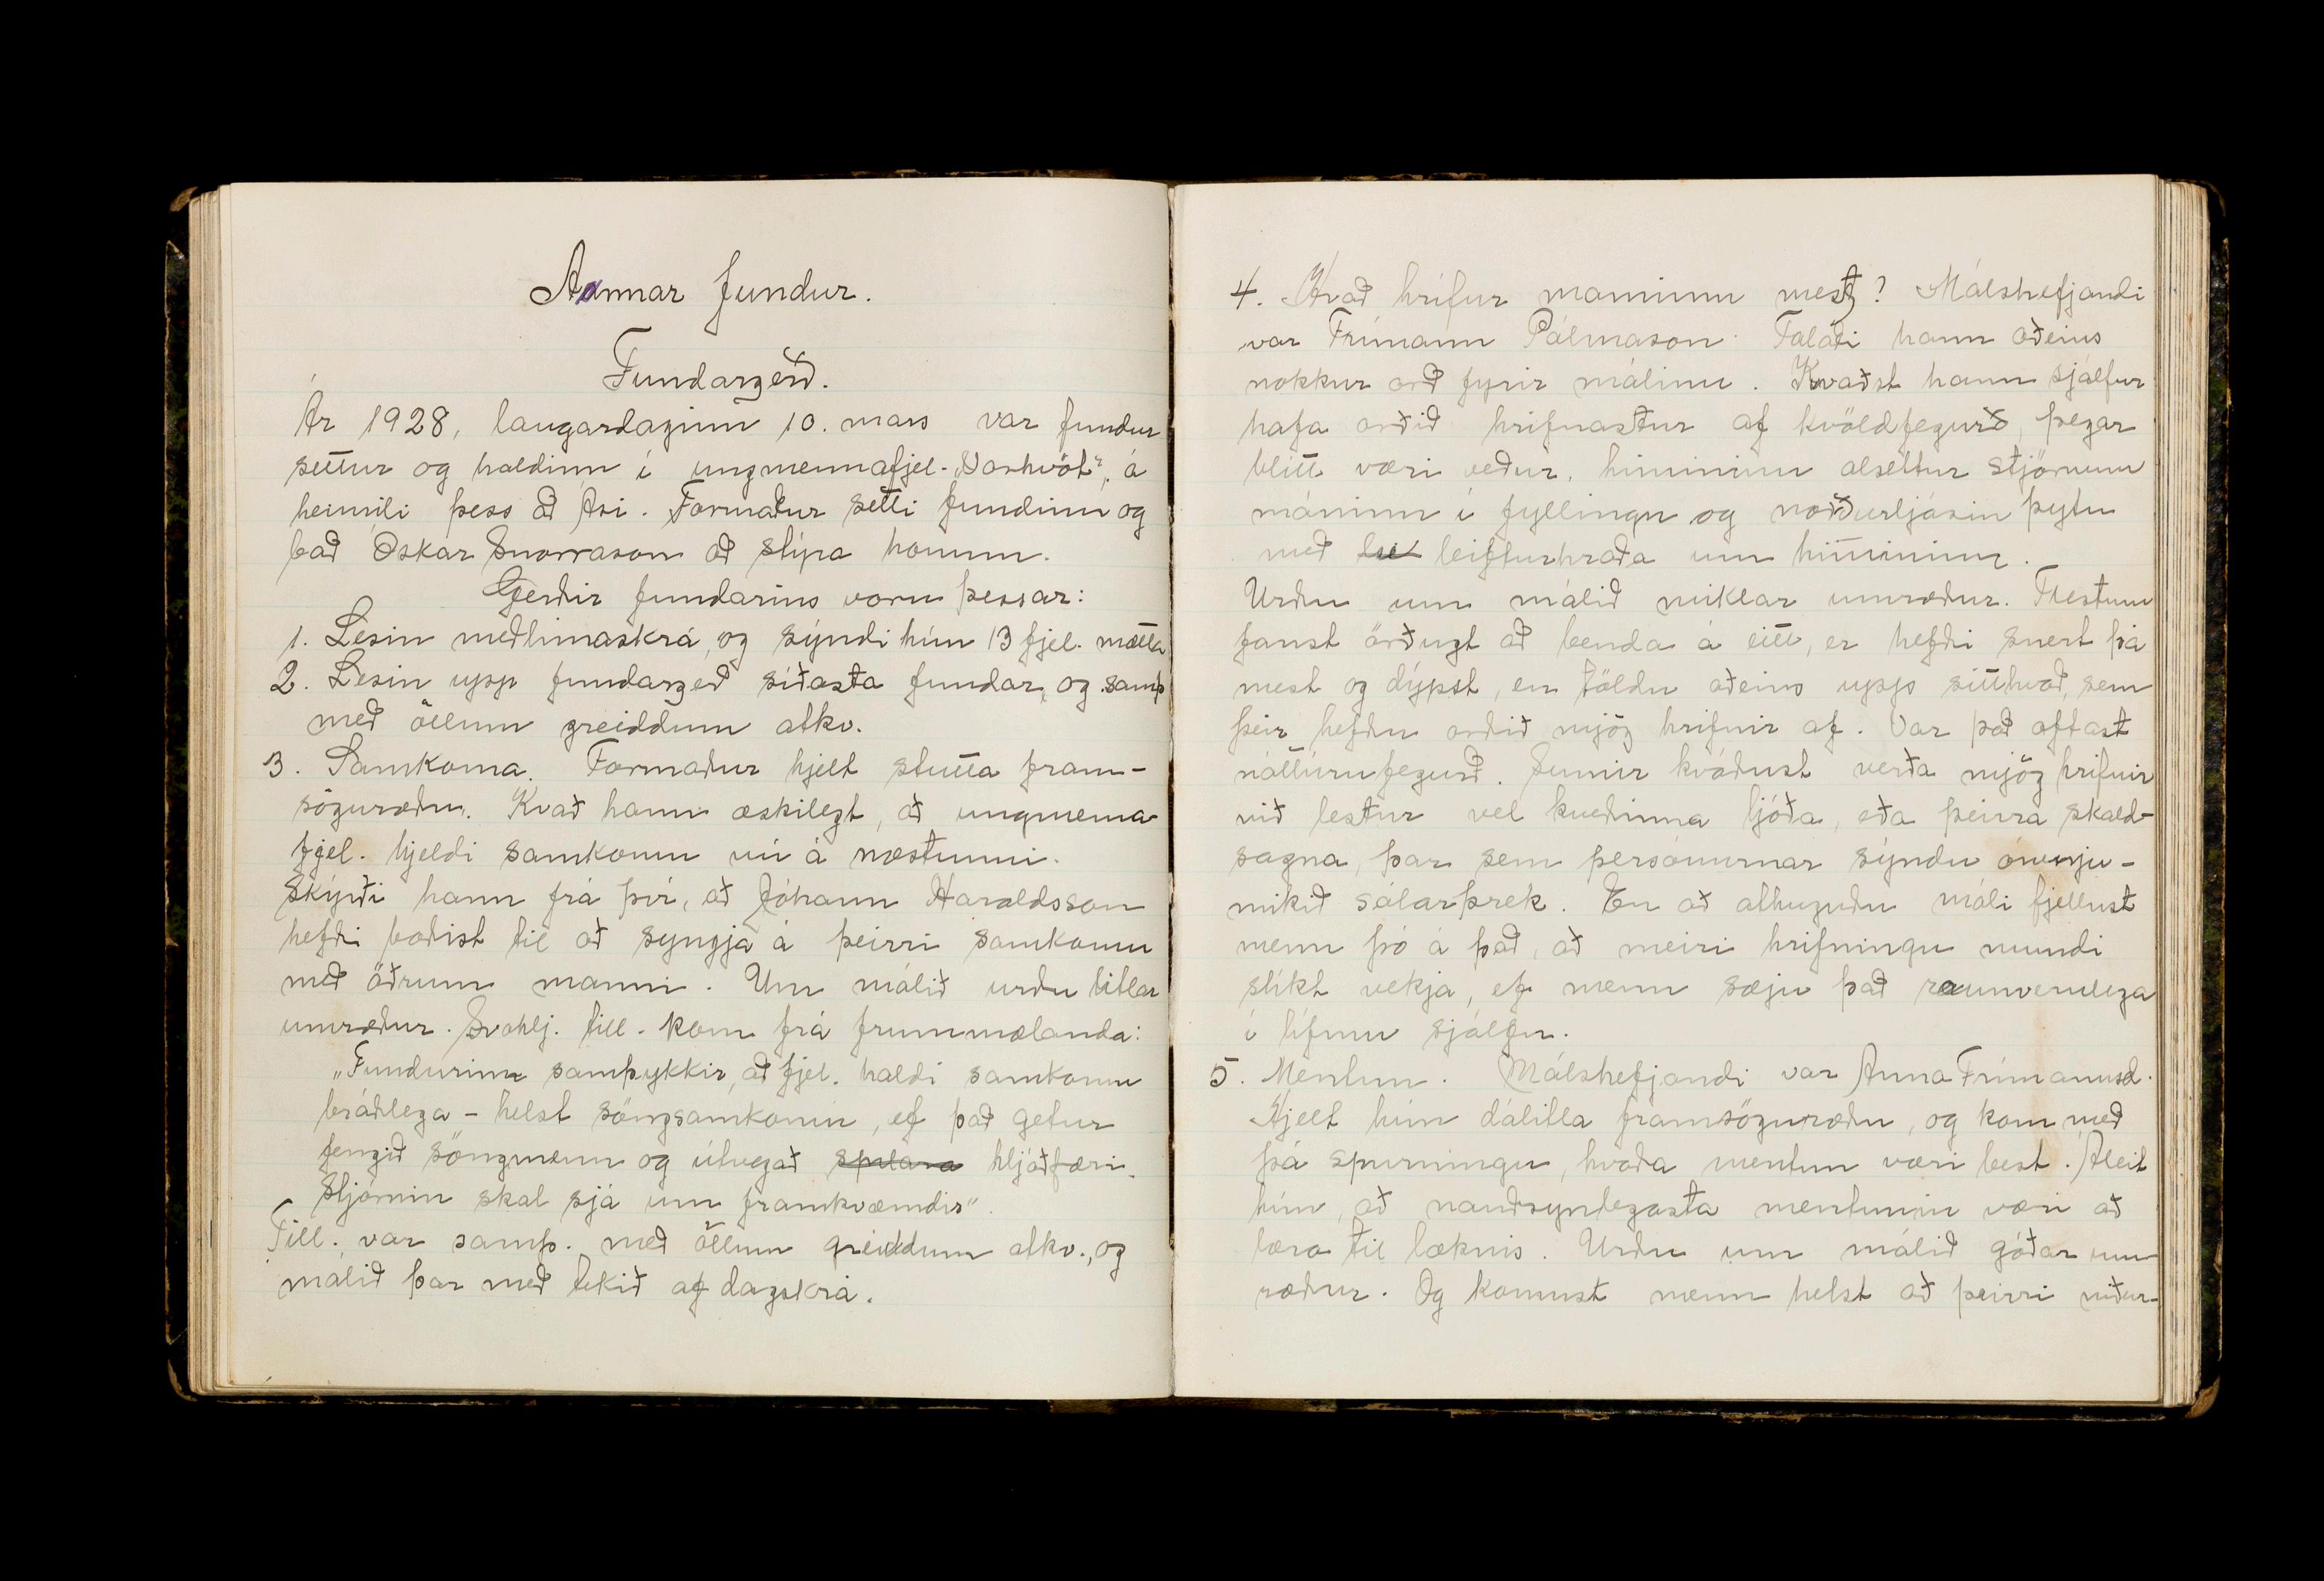 Annar fundur.
Fundargerð.
Ár 1928, laugardaginn 10. mars var fundur
settur og haldinn í ungmennafjel. „Vorhvöt", á
heimili þess að Ási. Formaður setti fundinn og
bað Óskar Snorrason að stýra honum.
Gerðir fundarins voru þessar:
1. Lesin meðlimaskrá, og sýndi hún 13 fjel. mætta
2. Lesin upp fundargerð síðasta fundar, og samþ
með öllum greiddum atkv.
3. Samkoma. Formaður hjelt stutta fram-
söguræðu. Kvað hann æskilegt, að ungmenna-
fjel. hjeldi samkomu nú á næstunni.
Skýrði hann frá því, að Jóhann Haraldsson
hefði boðist til að syngja á þeirri samkomu
með öðrum manni. Um málið urðu litlar
umræður. Svohlj. till. kom frá frummælanda:
„Fundurinn samþykkir, að fjel. haldi samkomu
bráðlega - helst söngsamkomu, ef það getur
fengið söngmenn og útvegað spilara hljóðfæri.
Stjórnin skal sjá um framkvæmdir".
Till. var samþ. með öllum greiddum atkv., og
málið þar með tekið af dagskrá.
4. Hvað hrífur manninn mest? Málshefjandi
var Frímann Pálmason. Talaði hann aðeins
nokkur orð fyrir málinu. Kvaðst hann sjálfur
hafa orðið hrifnastur af kvöldfegurð, þegar
blítt væri veður, himininn alsettur stjörnum
máninn í fyllingu og norðurljósin þytu
með leifturhraða um himininn.
Urðu um málið miklar umræður. Flestum
fanst örðugt að benda á eitt, er hefði snert þá
mest og dýpst, en töldu aðeins upp sitthvað, sem
þeir hefðu orðið mjög hrifnir af. Var það oftast
náttúrufegurð. Sumir kváðust verða mjög hrifnir
við lestur vel kveðinna ljóða, eða þeirra skald-
sagna, þar sem persónurnar sýndu óvenju-
mikið sálarþrek. En að athuguðu máli fjellust
menn þó á það, að meiri hrifningu mundi
slíkt vekja, ef menn sæju það raunverulega
í lífinu sjálfu.
5. Mentun. Málshefjandi var Anna Frímannsd.
Hjelt hún dálitla framsöguræðu, og kom með
þá spurningu, hvaða mentun væri best. Áleit
hún, að nauðsynlegasta mentunin væri að
læra til læknis. Urðu um málið góðar um
ræður. Og komust menn helst að þeirri niður-